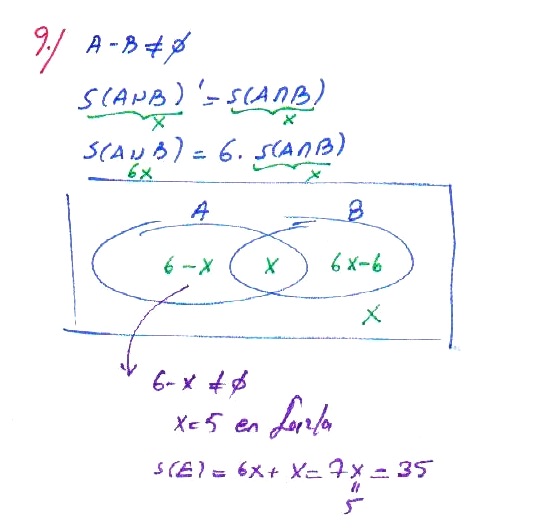 9.) A-B≠∅
S(A∪B)' = S(A∩B)
x x
S(A∪B) = 6. S(A∩B)
6x x
A B
6-x x 6x-6
x
6-x≠∅
x=5 en fazla
S(E) = 6x + x = 7x = 35
"
5